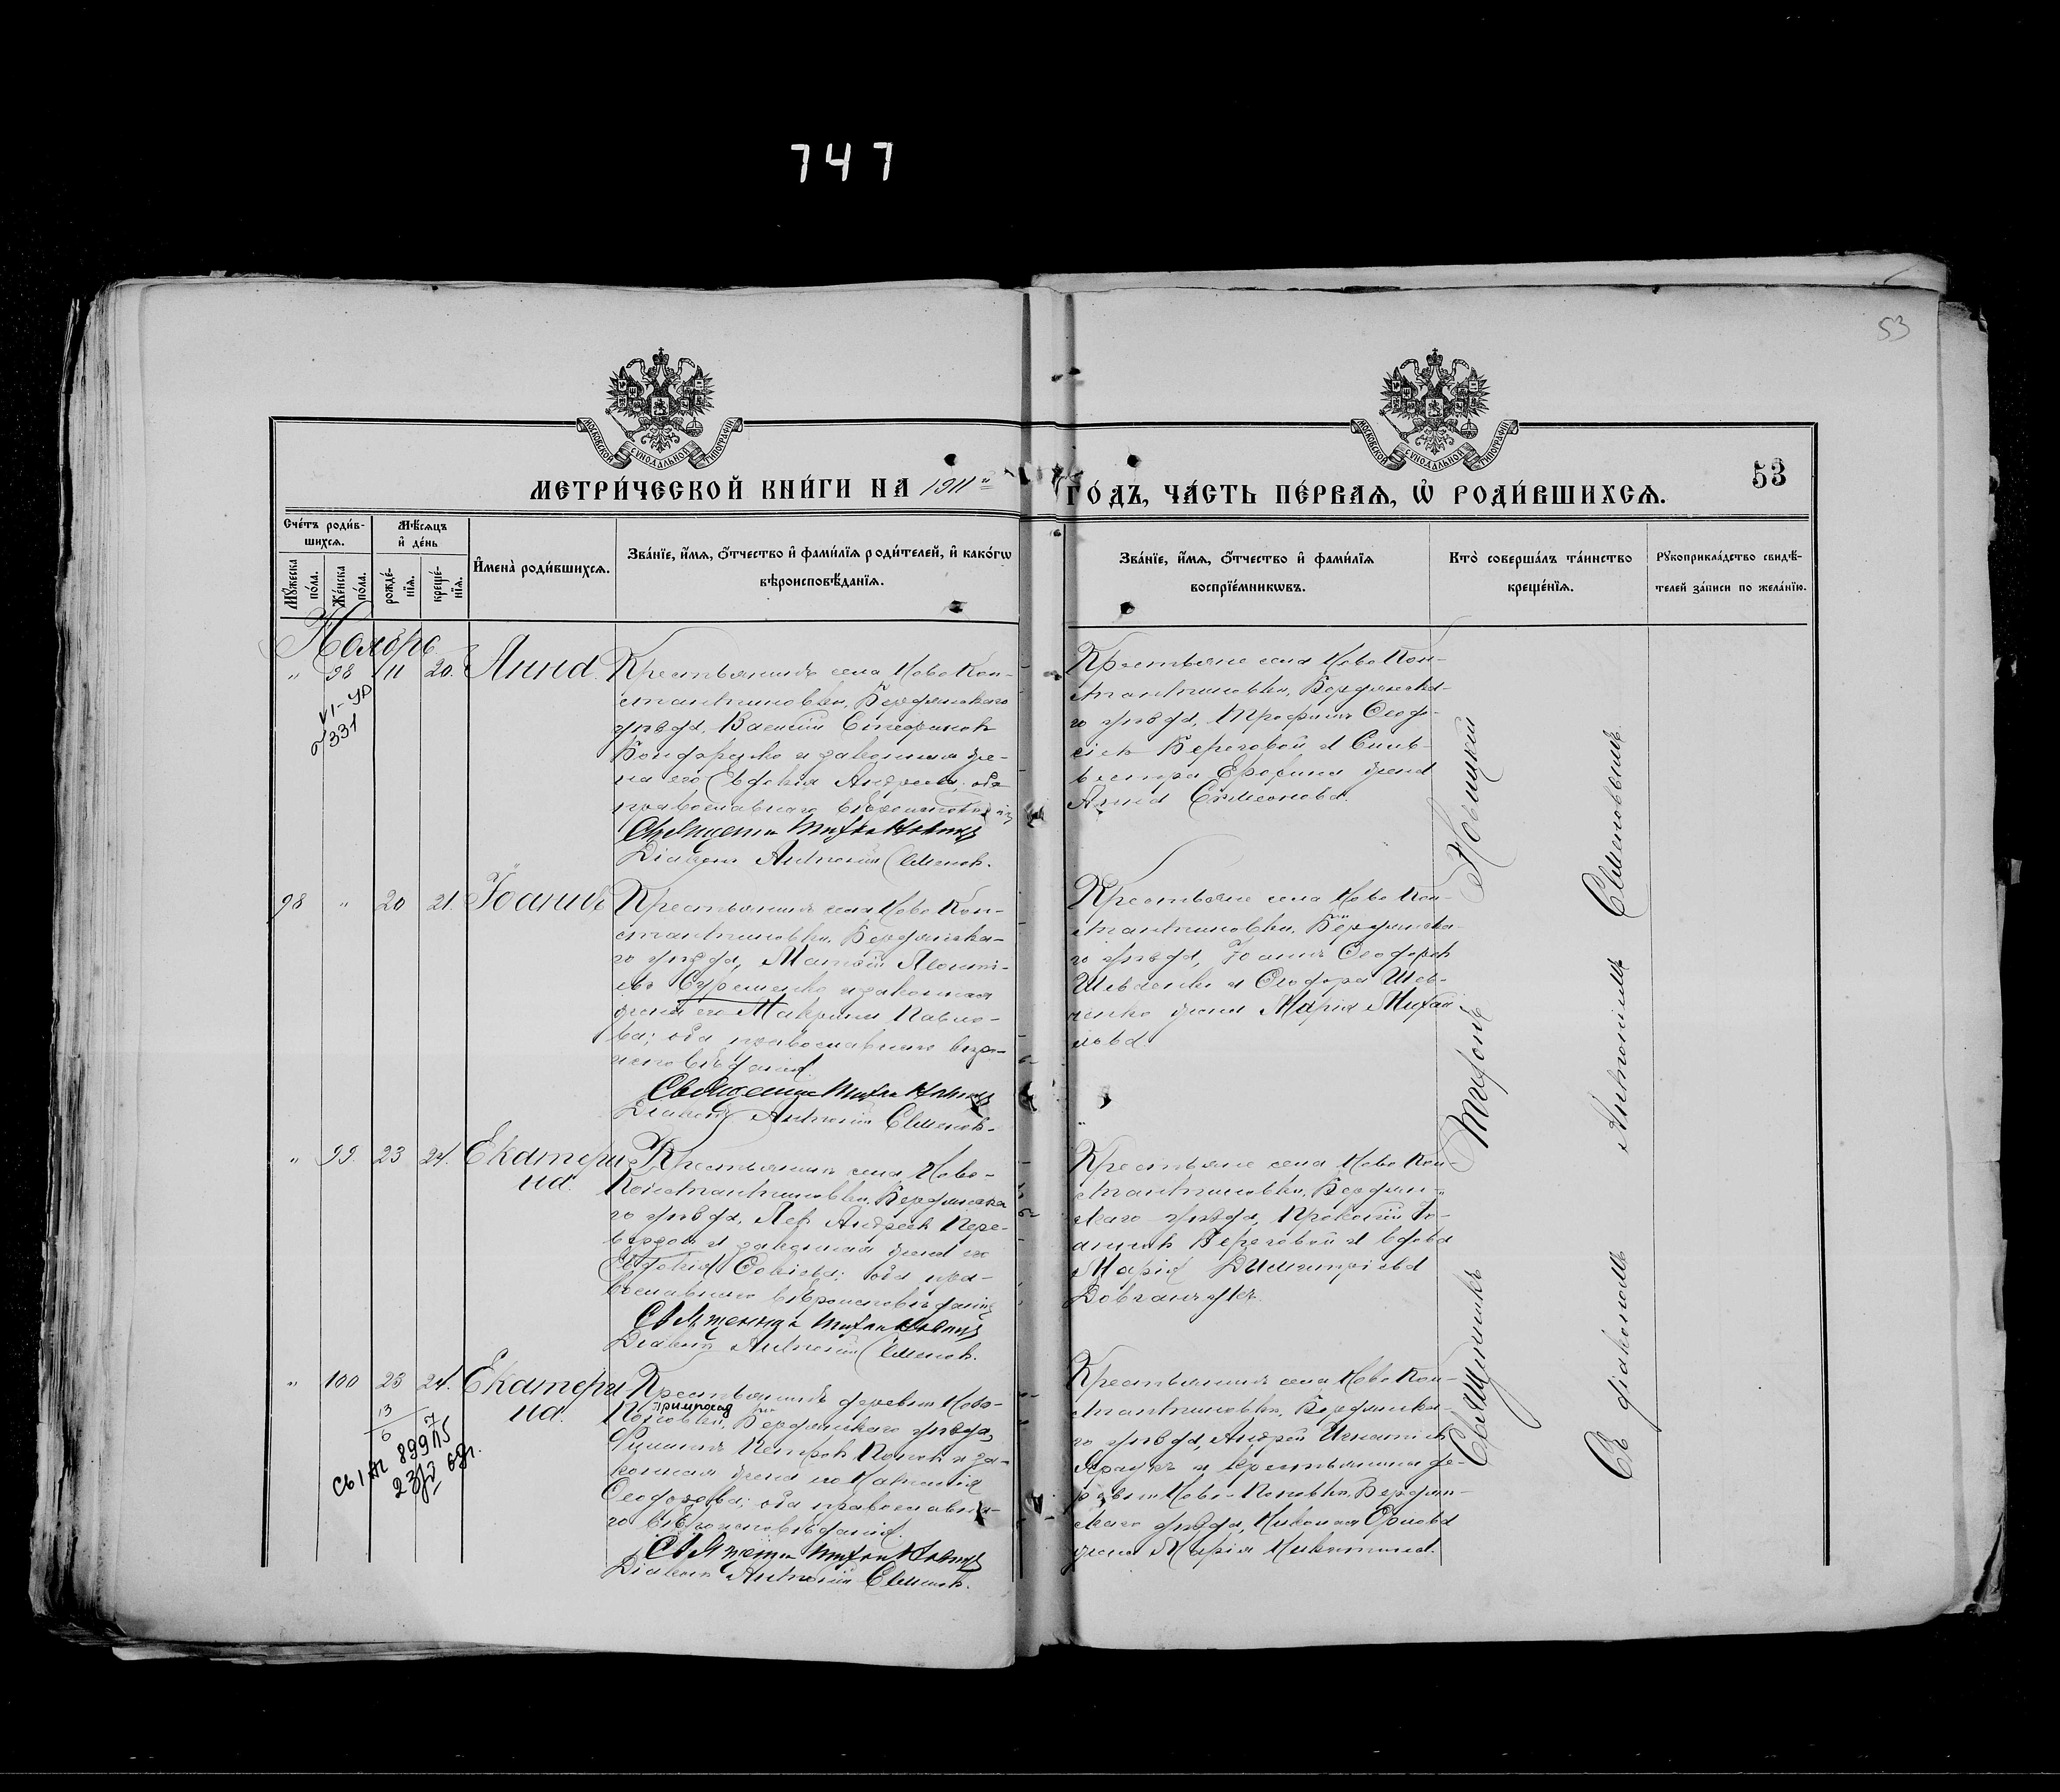 747
53
МОСКОВСКОЙ СУНОДАЛЬНОЙ ТИПОГРАФІИ
МОСКОВСКОЙ СУНОДАЛЬНОЙ ТИПОГРАФІИ
МЕТРИ́ЧЕСКОЙ КНИ́ГИ НА 1911
ГО́ДЪ, ЧА́СТЬ ПЕ́РВАѦ, Ѡ҆ РОДИ́ВШИХСѦ.
53
Сче́тъ роди́в-
шихсѧ.
Мꙋ́жеска по́ла.
Же́нска по́ла.
Мѣ́сѧцъ
и҆ де́нь
рожде́-
нїѧ.
креще́-
нїѧ.
И҆мена̀ роди́вшихсѧ.
Зва́нїе, и҆́мѧ, ѻ҆́тчество и҆ фами́лїѧ роди́телей, и҆ како́гѡ
вѣроисповѣ́данїѧ.
Зва́нїе, и҆́мѧ, ѻ҆́тчество и҆ фами́лїѧ
воспрїе́мникѡвъ.
Кто̀ соверша́лъ та́инство
креще́нїѧ.
Рꙋкоприкла́дство свидѣ́-
телей за́писи по жела́нїю.
Ноябрь
" 98 11 20. Анна.
Крестьянинъ села Ново Кон-
стантиновки, Бердянскаго
уѣзда, Василій Стефановъ
Бондаренко и законная же-
на его Евдокія Андреева; оба
православнаго вѣроисповѣданія
Священникъ Новицкій
Діаконъ Антоній Семенов.
Крестьяне села Ново Кон-
стантиновки, Бердянска-
го уѣзда, Трофимъ Ѳеодо-
сіевъ Береговой и Силь-
вестра Ерохина жена
Анна Симеонова.
98 " 20 21. Іоаннъ
Крестьянинъ села Ново Кон-
стантиновки, Бердянска-
го уѣзда, Матѳій Леонті-
евъ и законная
жена его Макрина Павло-
ва; оба православнаго вѣро-
исповѣданія.
Священникъ Новицкій
Діаконъ Антоній Семенов.
Крестьяне села Ново Кон-
стантиновки, Бердянска-
го уѣзда, Іоаннъ Ѳеодоровъ
Шевченко и Ѳеодора Шев-
ченко жена Марія Михаи-
лова.
" 99. 23 24. Екатери-
на.
Крестьянинъ села Ново-
Константиновки, Бердянска
го уѣзда, Андреевъ Пере-
верзовъ и законная жена его
Евдокія; оба пра-
вославнаго вѣроисповѣданія
Священникъ Новицкій
Діаконъ Антоній Семенов.
Крестьяне села Ново Кон-
стантиновки, Бердян-
скаго уѣзда, Прокопій Іо-
анновъ Береговой и вдова
Марія Димитріева
" 100 23 24. Екатери
на.
Крестьянинъ деревни Ново-
Поповки, Бердянскаго уѣзда,
Филиппъ Петровъ Поповъ и за-
конная жена его
Ѳеодорова; оба православна-
го вѣроисповѣданія.
Священникъ Новицкій
Діаконъ Антоній Семенов.
Крестьянинъ села Ново Кон-
стантиновки, Бердянска-
го уѣзда, Андрей Игнатіевъ
и крестьянина де-
ревни Ново-Поповки, Бердян-
скаго уѣзда, Николая Орлова
жена Марія Никитина.
Священникъ Новицкій
Съ діакономъ Антоніемъ Семеновымъ